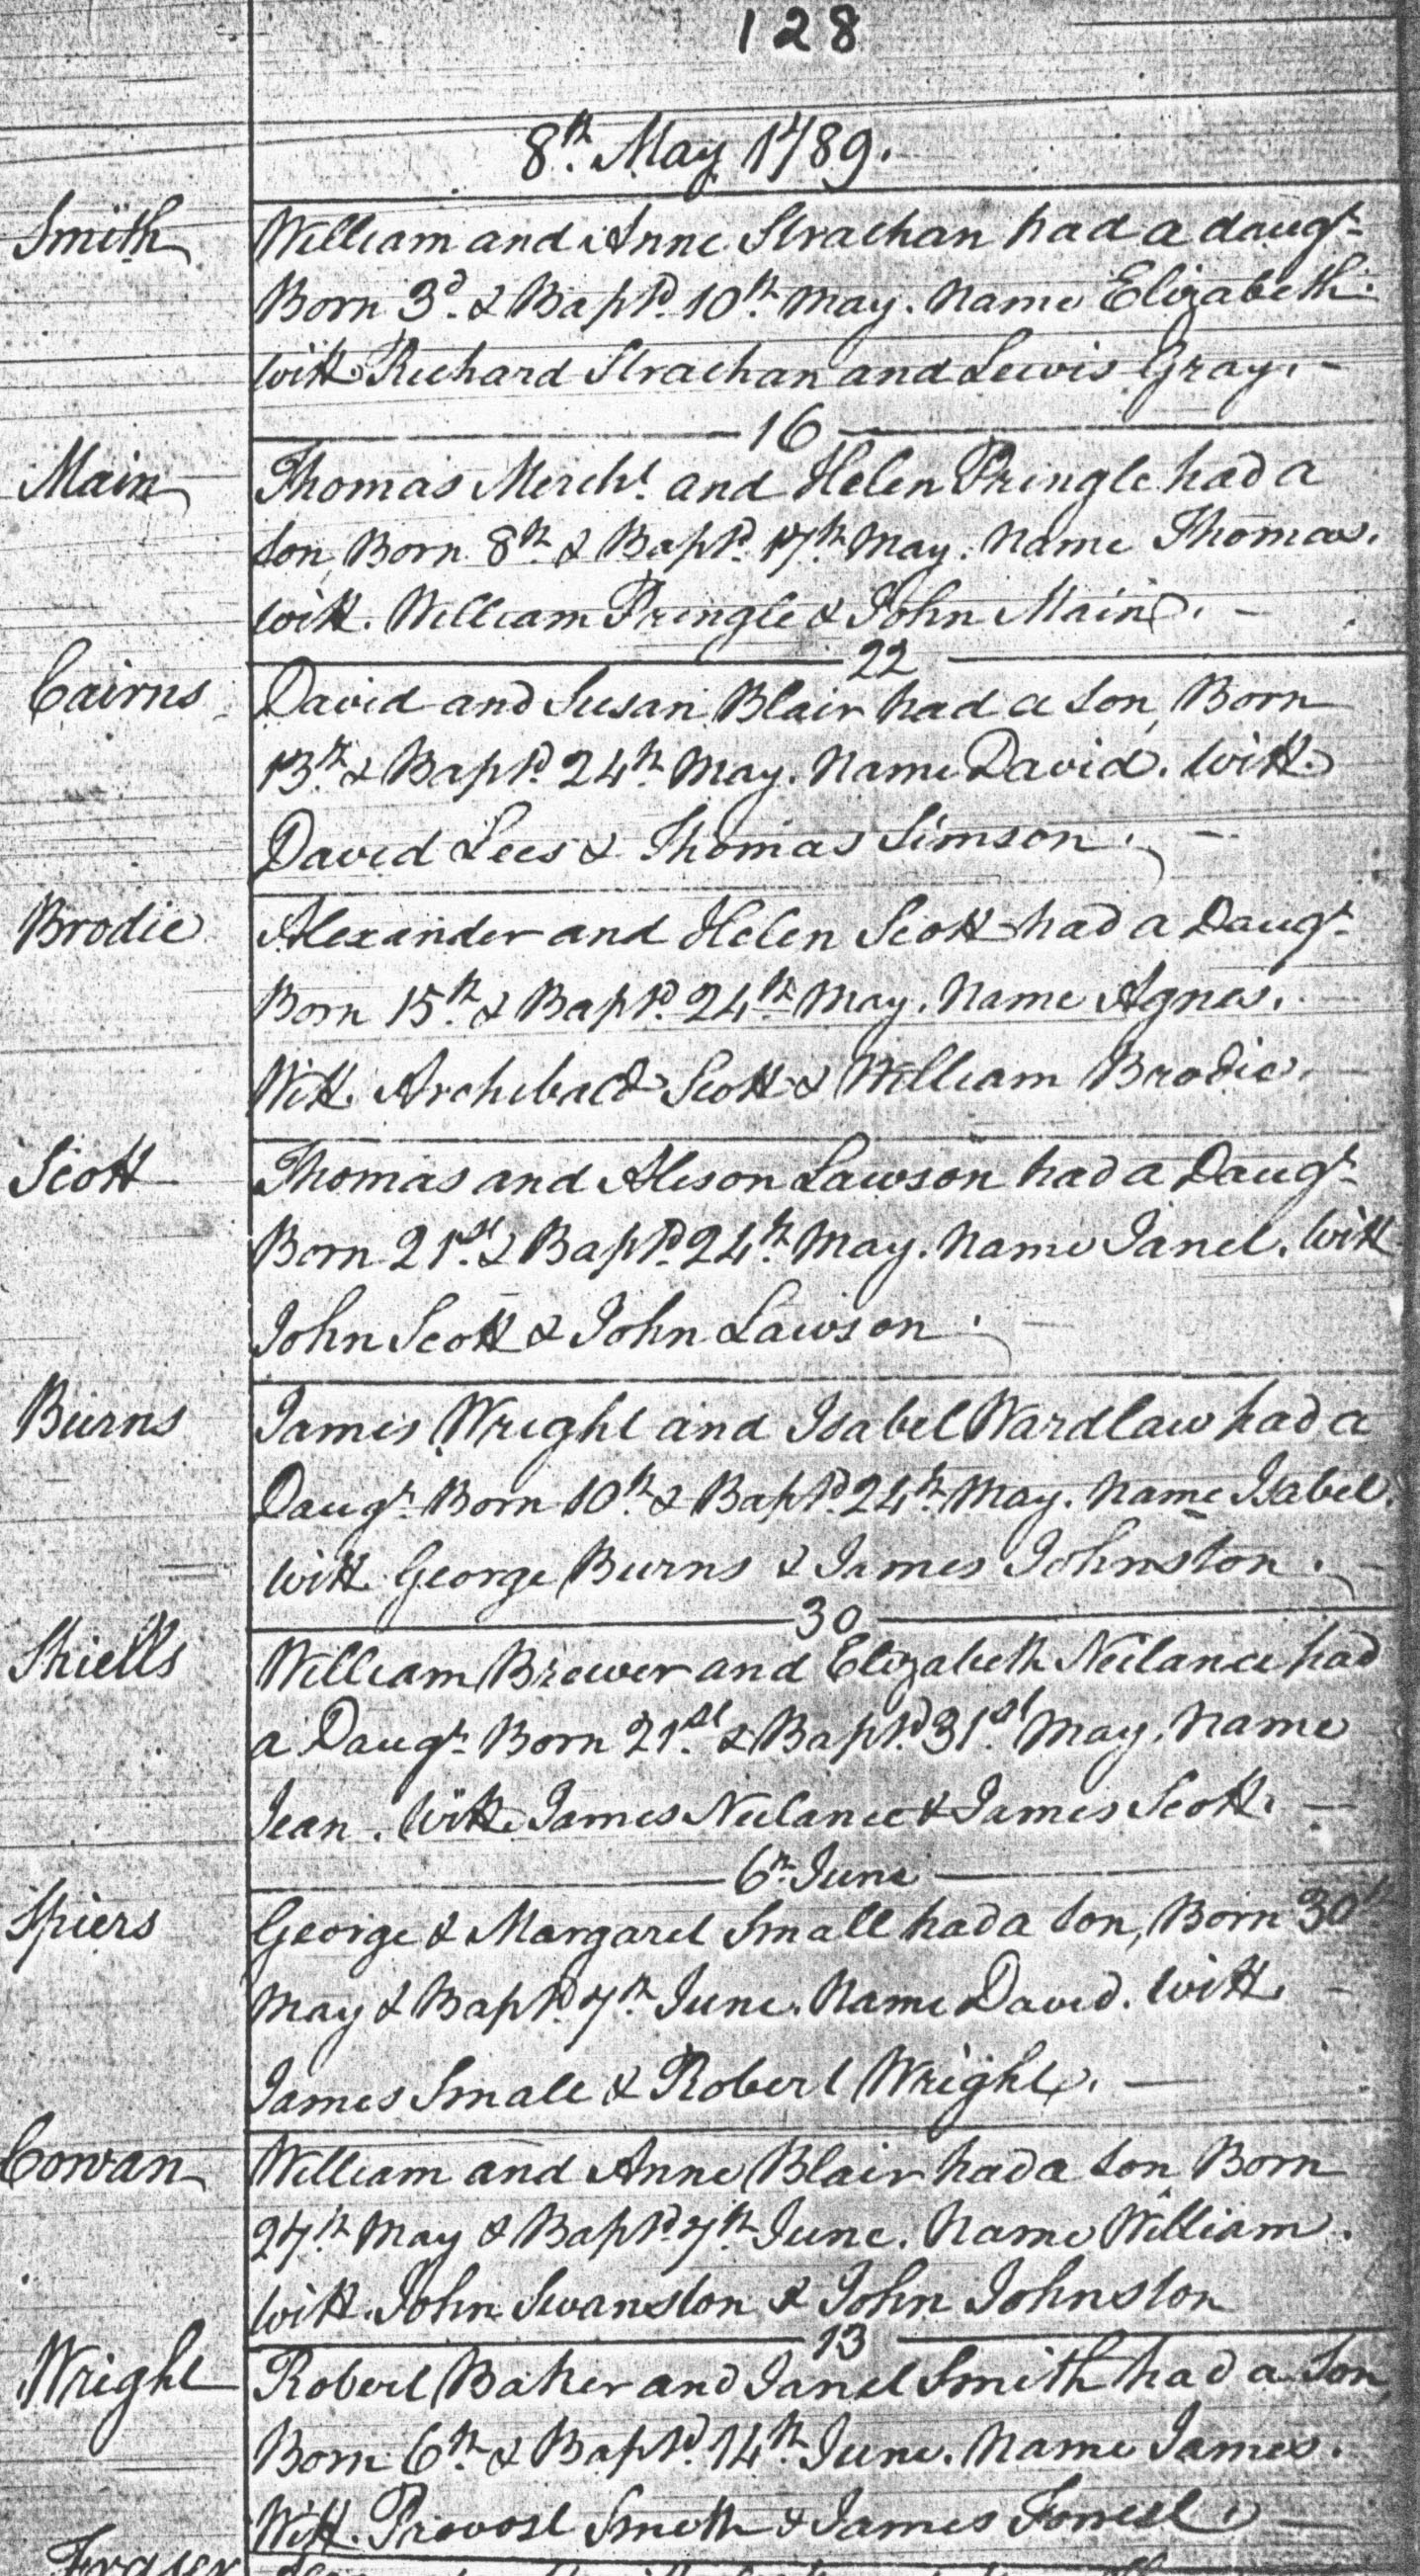 128
8th. May 1789.
Smith
William and Anne Strachan had a daugr.
Born 3d. & Baptd. 10th. May. Name Elizabeth.
Witt. Richard Strachan and Lewis Gray. -
16
Main
Thomas Mercht. and Helen Pringle had a
Son, Born 8th. & Baptd. 17th. May. Name Thomas.
Witt. William Pringle & John Main. -
22
Cairns
David and Susan Blair had a Son, Born
13th. & Baptd. 24th. May. Name David. Witt.
David Lees & Thomas Simson. -
Brodie
Alexander and Helen Scott had a Daugr.
Born 15th. & Baptd. 24th. May. Name Agnes.
Witt. Archibald Scott & William Brodie. -
Scott
Thomas and Alison Lawson had a Daugr.
Born 21st. & Baptd. 24th. May. Name Janet. Witt
John Scott & John Lawson. -
Burns
James Wright and Isabel Wardlaw had a
Daugr. Born 10th. & Baptd. 24th. May. Name Isabel.
Witt. George Burns & James Johnston. -
30
Shiells
William Brewer and Elizabeth Neilance had
a Daugr. Born 21st. & Baptd. 31st. May. Name
Jean. Witt. James Neilance & James Scott. -
6th. June
Spiers
George & Margaret Small had a Son, Born 30th
May & Baptd. 7th. June. Name David. Witt. -
James Small & Robert Wright. -
Cowan
William and Anne Blair had a Son Born
27th. May & Baptd. 7th. June. Name William.
Witt. John Swanston & John Johnston
13
Wright
Robert Baker and Janet Smith had a Son,
Born 6th. & Baptd. 14th. June. Name James.
Witt. Provost Smith & James Forrest. -
Fraser